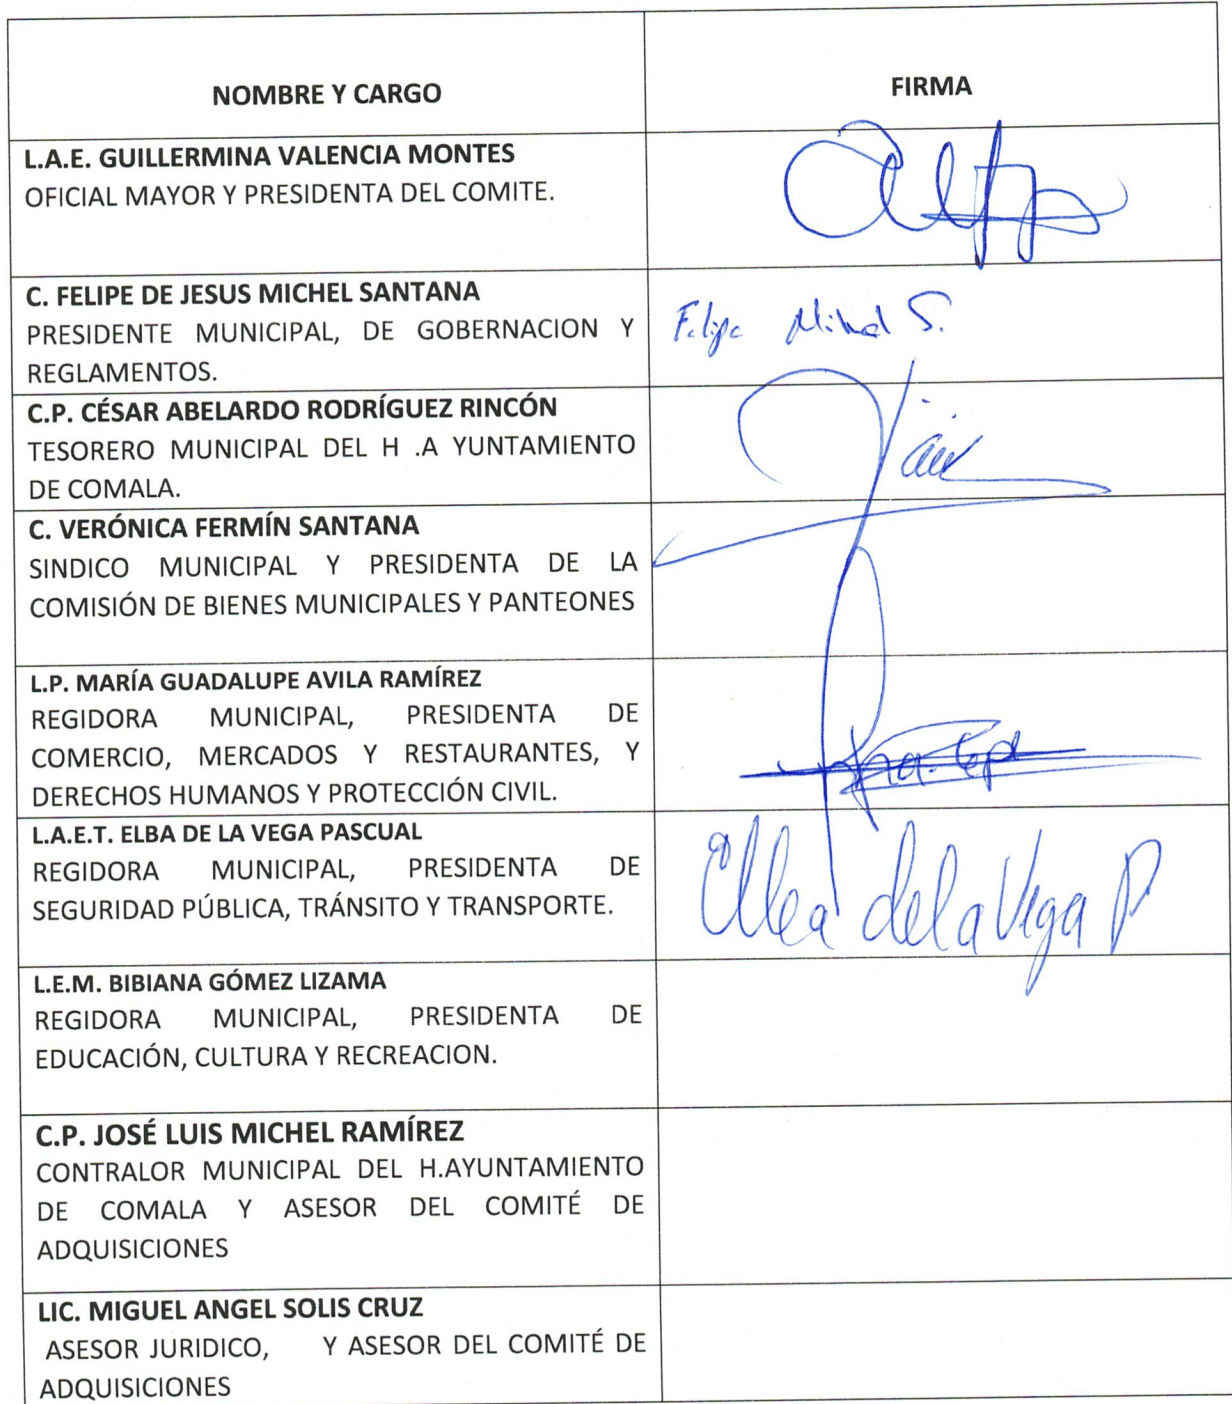 NOMBRE Y CARGO
FIRMA
L.A.E. GUILLERMINA VALENCIA MONTES
OFICIAL MAYOR Y PRESIDENTA DEL COMITE.
C. FELIPE DE JESUS MICHEL SANTANA
PRESIDENTE MUNICIPAL, DE GOBERNACION Y
REGLAMENTOS.
Felipe Michel S.
C.P. CÉSAR ABELARDO RODRÍGUEZ RINCÓN
TESORERO MUNICIPAL DEL H .A YUNTAMIENTO
DE COMALA.
C. VERÓNICA FERMÍN SANTANA
SINDICO MUNICIPAL Y PRESIDENTA DE LA
COMISIÓN DE BIENES MUNICIPALES Y PANTEONES
L.P. MARÍA GUADALUPE AVILA RAMÍREZ
REGIDORA MUNICIPAL, PRESIDENTA DE
COMERCIO, MERCADOS Y RESTAURANTES, Y
DERECHOS HUMANOS Y PROTECCIÓN CIVIL.
L.A.E.T. ELBA DE LA VEGA PASCUAL
REGIDORA MUNICIPAL, PRESIDENTA DE
SEGURIDAD PÚBLICA, TRÁNSITO Y TRANSPORTE.
Elba de la Vega P
L.E.M. BIBIANA GÓMEZ LIZAMA
REGIDORA MUNICIPAL, PRESIDENTA DE
EDUCACIÓN, CULTURA Y RECREACION.
C.P. JOSÉ LUIS MICHEL RAMÍREZ
CONTRALOR MUNICIPAL DEL H.AYUNTAMIENTO
DE COMALA Y ASESOR DEL COMITÉ DE
ADQUISICIONES
LIC. MIGUEL ANGEL SOLIS CRUZ
ASESOR JURIDICO, Y ASESOR DEL COMITÉ DE
ADQUISICIONES